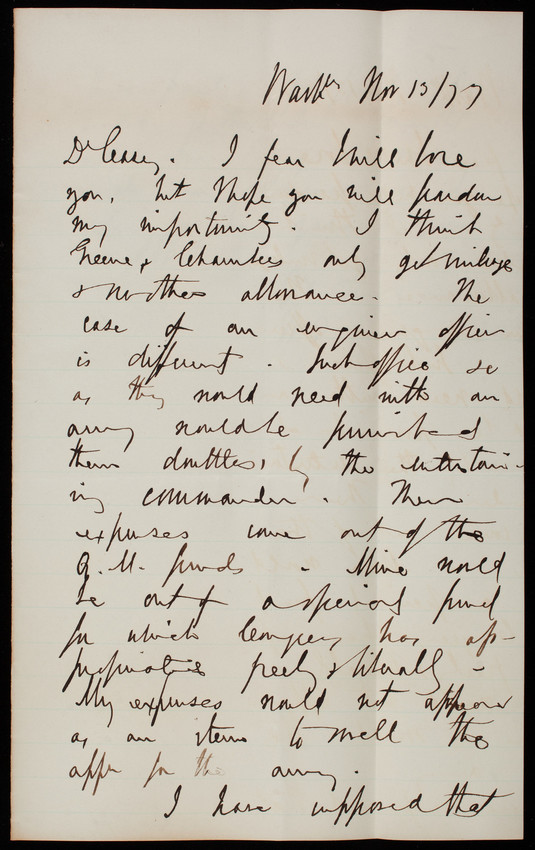 Washn Nov 13/77
Dr Casey. I fear I will bore
you, but I hope you will pardon
my importunity. I think
Greene & Chambers only get mileage
& no other allowance. The
case of an engineer officer
is different. Such offices &c
as they would need with an
army would be furnished
them doubtless, by the entertain-
ing commander. Their
expenses come out of the
Q. M. funds - Mine would
be out of a special fund
for which Congress has ap-
propriated freely & liberally -
My expenses would not appear
as an item to swell the
appn for the army.
I have supposed that